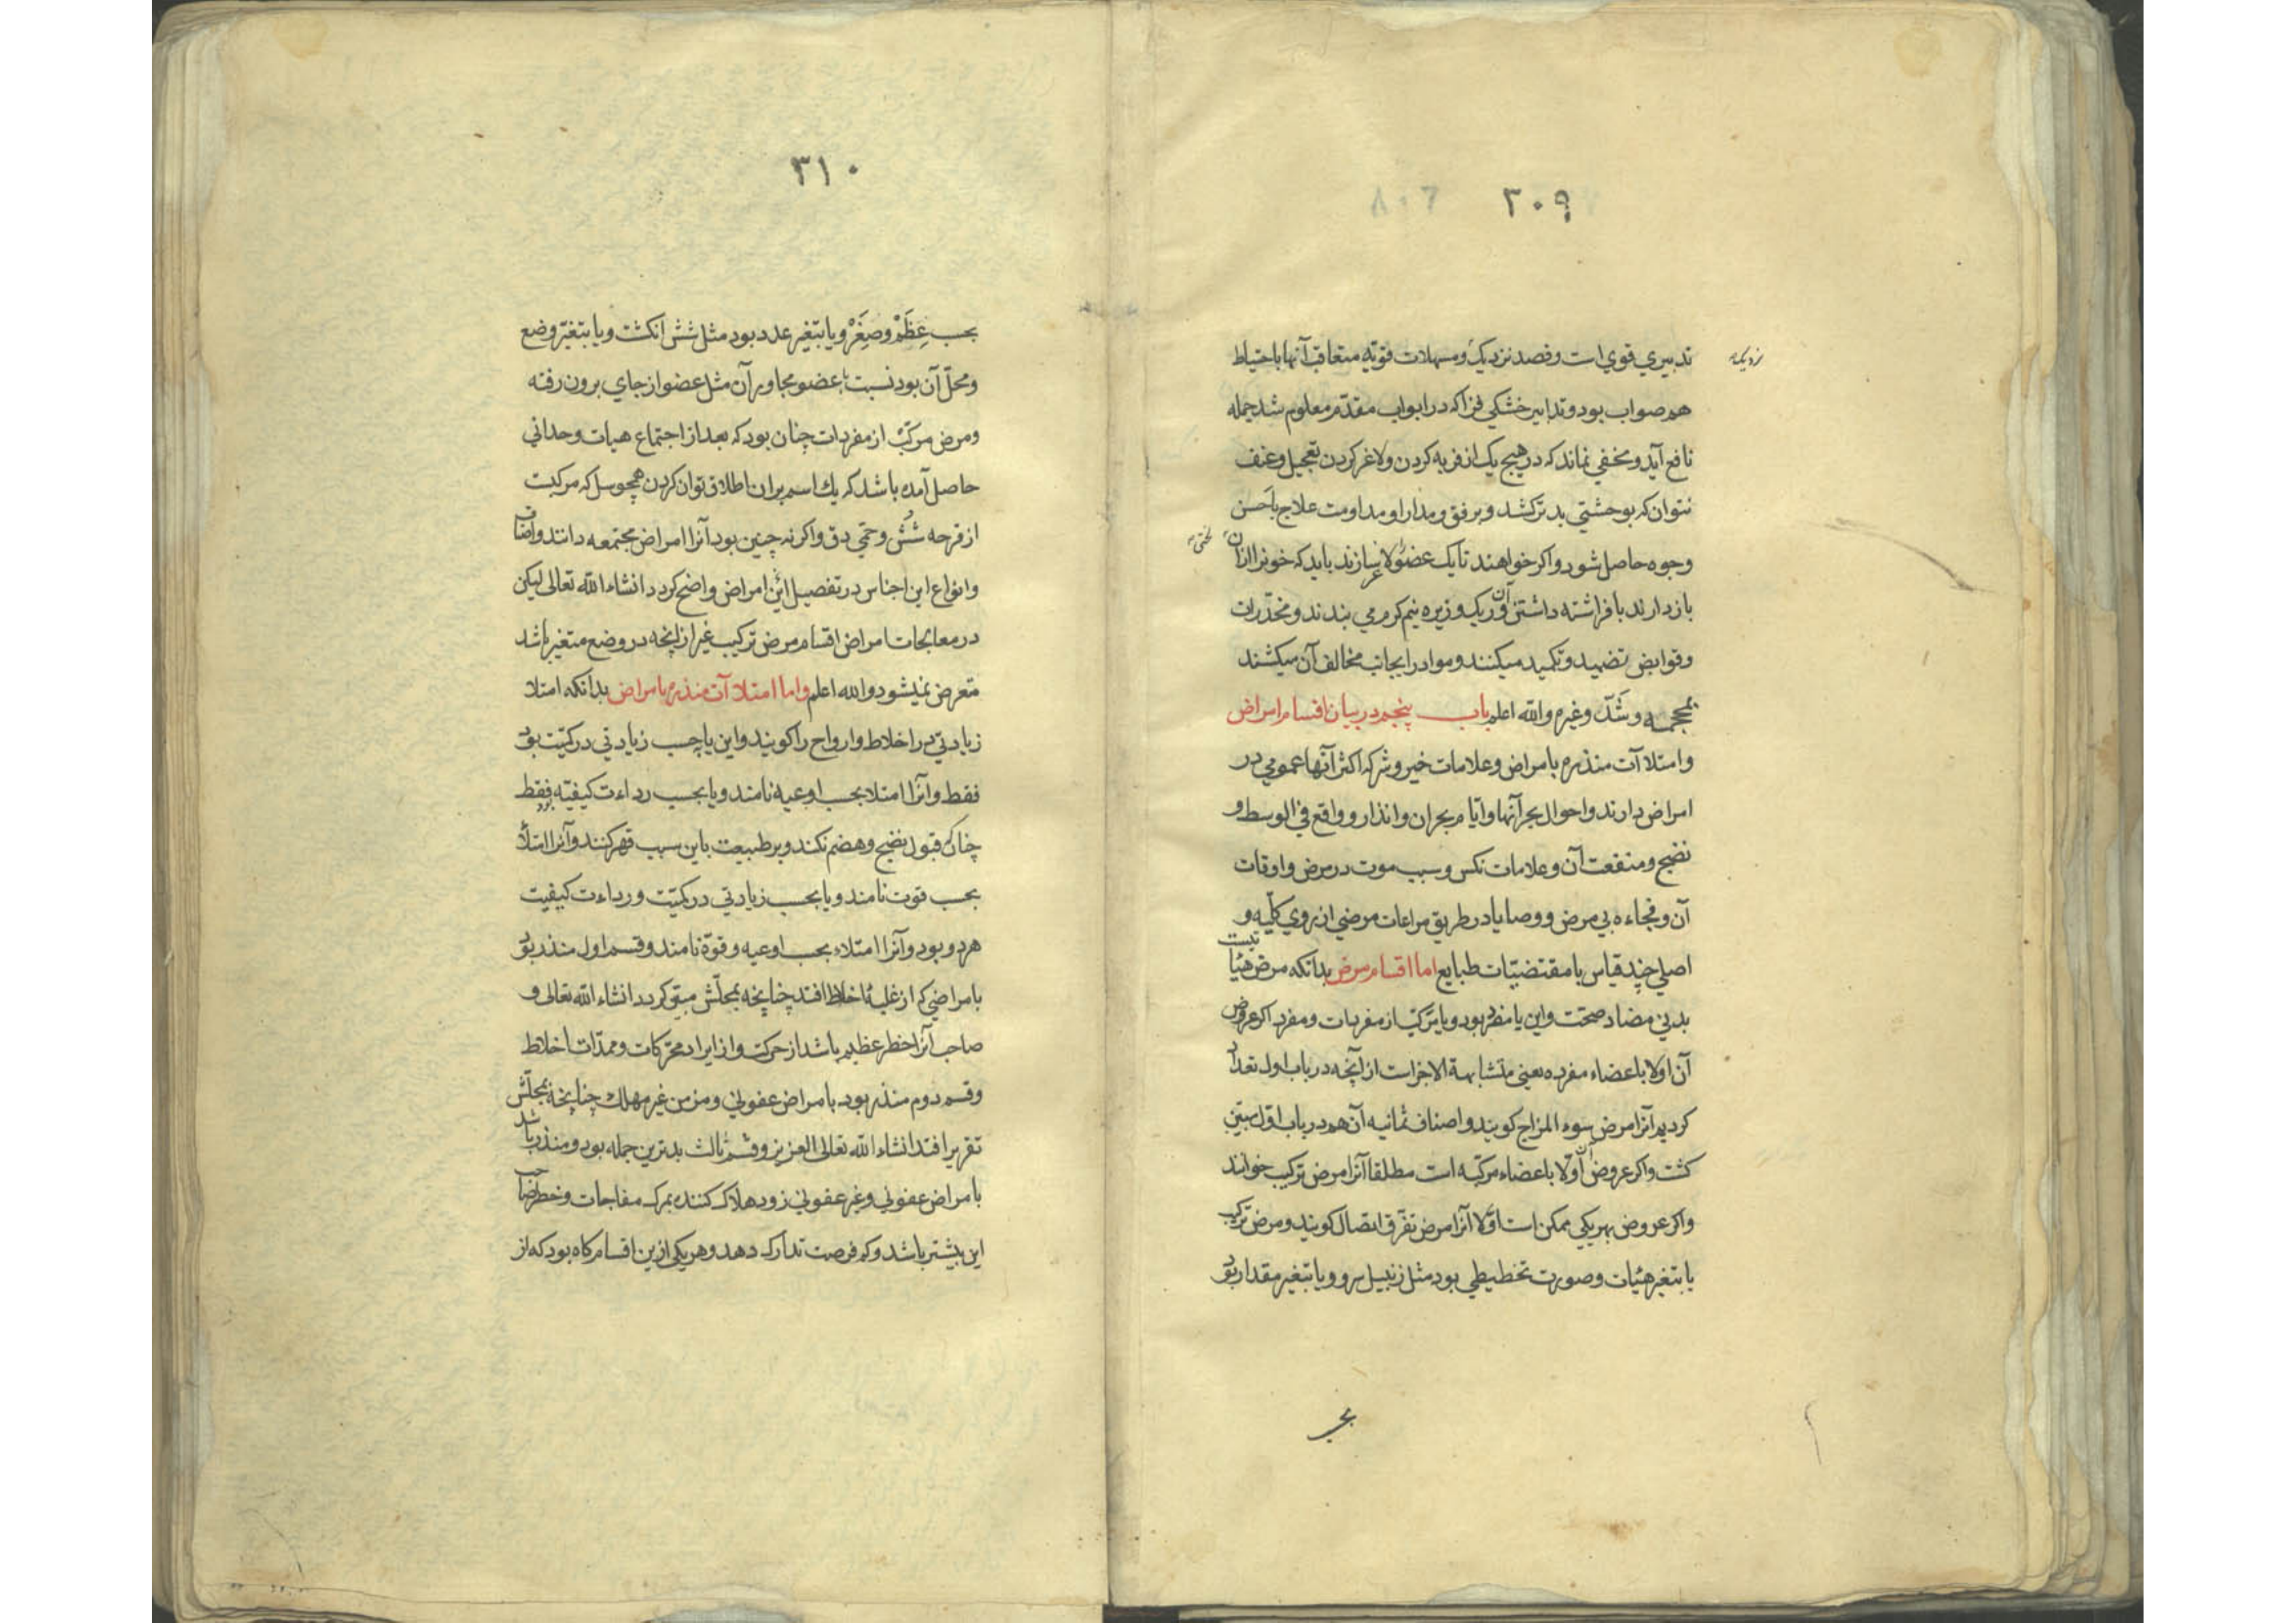 ۳۰۹
تدبیري قوي است وفصد نزدیک ومسهلات قویّه متعاقب آنها باحتیاط
نزدیک
هم صواب بود وتدابیر خشکي فزا که در ابواب مقدّم معلوم شد جمله
نافع آید ومخفي نماند که در هیچ یک از فربه کردن ولاغر کردن تعجیل وعنف
نتوان که بوحشتي بدتر کشد وبرفق ومدارا ومداومت علاج باحسن
وجوه حاصل شود واکر خواهند تا یک عضو را لاغر سازند باید که خونرا ازان
باز دارند بافراشته داشتن آن وریک وزیره نیم کرم مي بندند ومخدّرات
وقوابض تضمید وتکمید میکنند ومواد را بجانب مخالف آن میکشند
بمحجمه وشدّ وغیره والله اعلم باب پنجم در بیان اقسام امراض
وامتلاآت منذره بامراض وعلامات خیر وشر که اکثر آنها عمومي در
امراض دارند واحوال بحرآنها وایّام بحران وانذار وواقع في الوسط و
نضج ومنفعت آن وعلامات نکس وسبب موت در مرض واوقات
آن وفجاءه بي مرض ووصایا در طریق مراعات مرضي از روي کلّیه و
اصلي چند قیاس با مقتضیّات طبایع اما اقسام مرض بدانکه مرض هیٔاتیست
بدني مضاد صحت واین یا مفرد بود ویا مرکّب از مفردات ومفرد اکر عروض
آن اولا باعضاء مفرده یعني متشابهة الاجزاست از آنچه در باب اول تعداد
کردیم آنرا مرض سوء المزاج کویند واصناف ثمانیه آن هم در باب اوّل مبیّن
کشت واکر عروض آن اوّلا باعضاء مرکّبه است مطلقا آنرا مرض ترکیب خوانند
واکر عروض بهر یکي ممکن است اوّلا آنرا مرض تفرّق اتصال کویند ومرض ترکیب
یا بتغیر هیٔات وصورت تخطیطي بود مثل زنبیل سر وویا بتغیر مقدار بود
بحسب
۳۱۰
بحسب عِظَمْ وصِغَرْ ویا بتغیر عدد بود مثل شش انکشت ویا بتغیّر وضع
ومحلّ آن بود نسبت با عضو مجاور آن مثل عضو از جاي برون رفته
ومرض مرکّب از مفردات چنان بود که بعد از اجتماع هیات وحداني
حاصل آمده باشد که یك اسم بران اطلاق توان کردن همچو سل که مرکبست
از قرحه شُش وحمّي دق واکر نه چنین بود آنرا امراض مجتمعه دانند واصناف
وانواع این اجناس در تفصیل این امراض واضح کردد انشاء الله تعالی لیکن
در معالجات امراض اقسام مرض ترکیب غیر از انچه در وضع متغیر باشد
متعرض نمیشود والله اعلم واما امتلاآت منذره بامراض بدانکه امتلا
زیادتي در اخلاط وارواح را کویند واین یا بحسب زیادتي در کمیّت بود
فقط وآنرا امتلا بحسب اوعیه نامند ویا بحسب رداءت کیفیّه بود فقط
چنانکه قبول نضج وهضم نکند وبر طبیعت باین سبب قهر کنند وآنرا امتلاء
بحسب قوت نامند ویا بحسب زیادتي در کمیّت ورداءت کیفیت
هردو بود وآنرا امتلاء بحسب اوعیه وقوّة نامند وقسم اول منذر بود
بامراضي که از غلبهٔ اخلاط افتد چنانچه بمحلّش مبیّن کردد انشاء الله تعالی و
صاحب آنرا خطر عظیم باشد از حرکت واز ایراد محرّکات وممدّات اخلاط
وقسم دوم منذر بود بامراض عفوني ومزمن غیر مهلك چنانچه بمحلّش
تقریر افتد انشاء الله تعالی العزیز وقسم ثالث بدترین جمله بود ومنذر باشد
بامراض عفوني وغیر عفوني زود هلاک کننده بمرک مفاجات وخطر صاحب
این بیشتر باشد وکم فرصت تدارک دهد وهر یکي ازین اقسام کاه بود که از